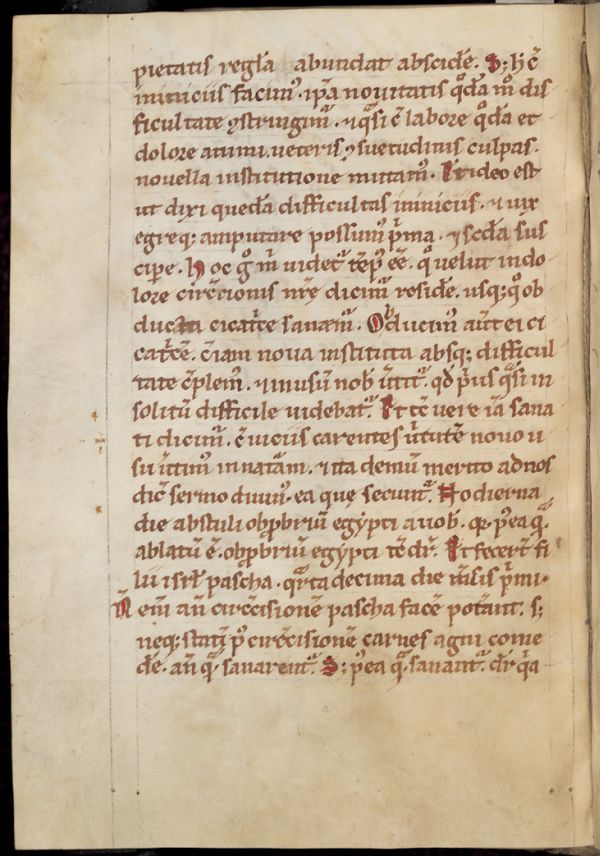 pietatis regła abundat abscidē. S; h̄ c̄
ininiciis facim᷒. ip̄a nouitatis qͦdā mͦ dis
ficultate ꝯstringim᷒. ⁊ qͣsi ē labore qͦdā et
dolore animi. ueteris ꝯsuetudinis culpas.
nouella institutione mutam᷒. Et ideo est
ut dixi quedā difficultas ininiciis. ⁊ uix
egreq; amputare possum᷒ p̄ma. ⁊ scd̄a sus
cipe. Hoc g̊ m̄ uidet᷑ tēp᷒ ēē. qͦ uelut indo
lore circ̄cionis nr̄e dicim᷑ residē. usq; qͦ ob
ducta cicatͥce sanam᷑. Obducim᷒ aut̄ ei ci
catͥcē. c̄iam noua instituta absq; difficul
tate c̄plem᷒. ⁊ inusū nob̄ ūtit᷑. qd̄ pͥus qͣsi in
solitū difficile uidebat᷑. Et tc̄ uere iā sana
ti dicim᷑. c̄ uiciis carentes ūtutē nouo u
su ūtim᷒ innatām. ⁊ ita demū merito ad nos
dic̄ sermo diuin᷒. ea quę secunt᷑. Hodierna
die abstuli obꝓbriū egypti a uob̄. qꝛ p᷒ea qͣ
ablatū ē. obꝓbriū egypti tc̄ dr̄. Et fecer̄t fi
lii isrł pascha. qͣrta decima die m̄sis pͥmi.
Nem̄ an̄ circ̄cisionē pascha facē potāt. s;
neq; stati p᷒ circ̄cisionē carnes agni come
dē. an̄ qͣ sanarent᷑. S; p᷒ea qͣ sanant᷑. dr̄ qͥa